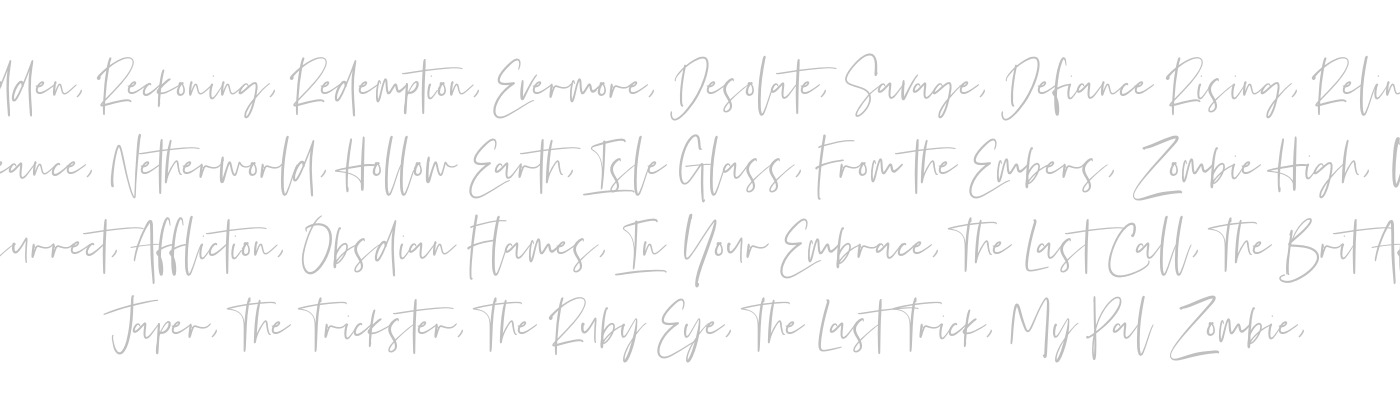 dden, Reckoning, Redemption, Evermore, Desolate, Savage, Defiance Rising, Relin
eance, Netherworld, Hollow Earth, Isle Glass, From the Embers, Zombie High,
urrect, Affliction, Obsdian Flames, In Your Embrace, The Last Call, The Brit A
Japer, The Trickster, The Ruby Eye, The Last Trick, My Pal Zombie,